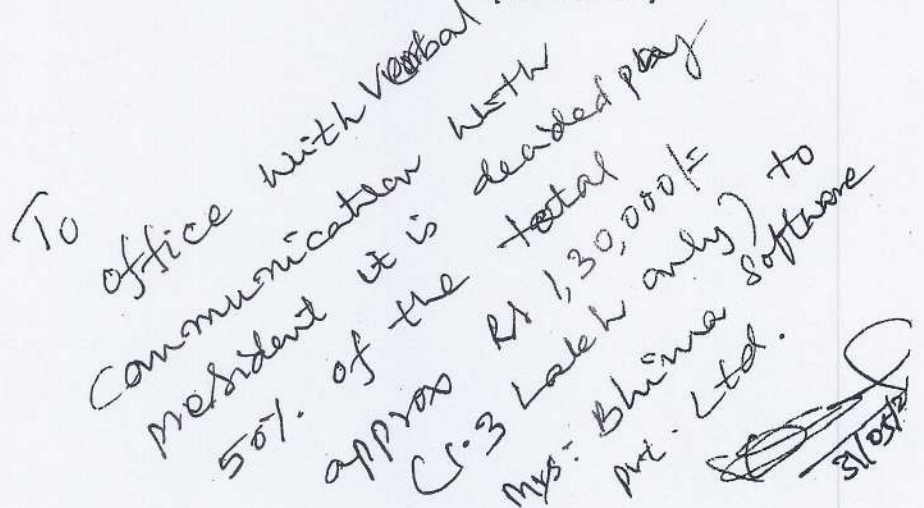 To
office with Verbal
communication with
president it is decided pay
50%. of the total
approx Rs 1,30,000/=
(1.3 Lakh only) to
M/s:- Bhima Software
pvt. Ltd.
31/05/2